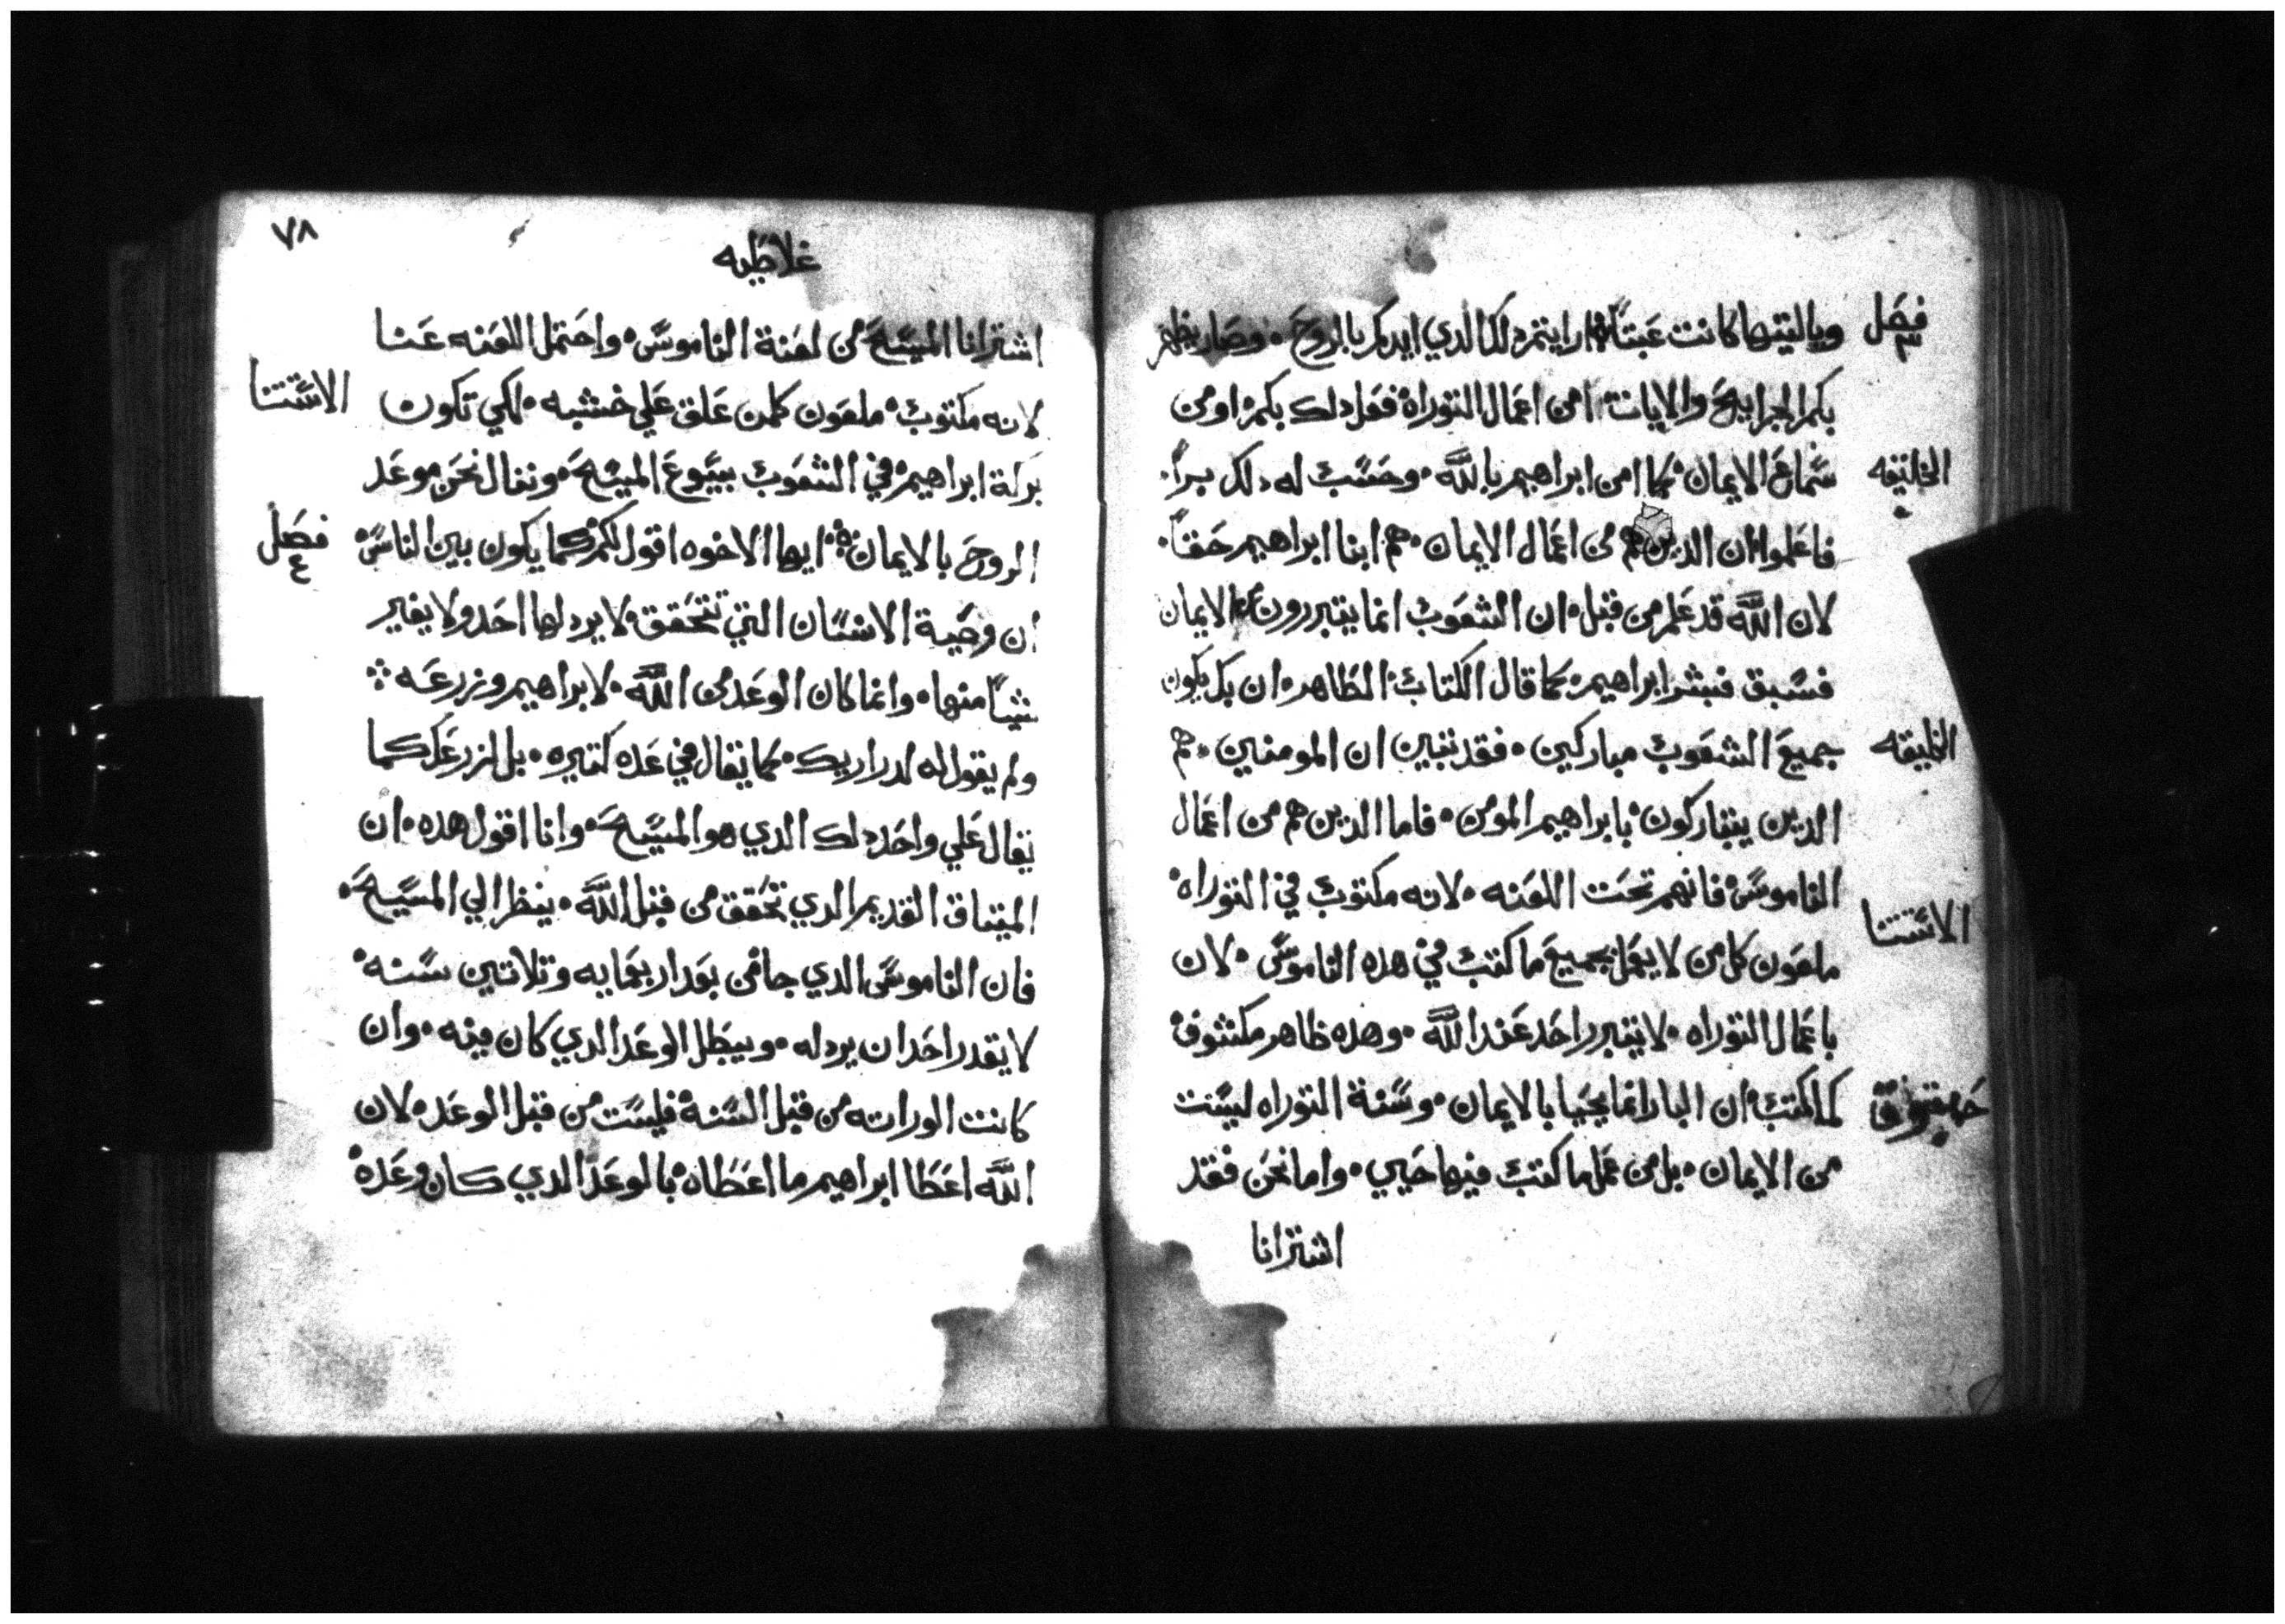 فصل ٣
وياليتها كانت عبتاً ارايتم دلك الدي ايدكم بالروح وصار يظهر
بكم الجرايح والايات امن اعمال التوراة فعل دلك بكم او من
الخليقه
سماع الايمان كما امن ابراهيم بالله وحسب له دلك براً
فاعلموا ان الدين هم من اعمال الايمان هم ابنا ابراهيم حقاً
لان الله قد علم من قبل ان الشعوب انما يتبررون من الايمان
فسبق فبشر ابراهيم كما قال الكتاب الطاهر ان بك يكون
الخليقه
جميع الشعوب مباركين فقد تبين ان المومنين هم
الدين يتباركون بابراهيم المومن فاما الدين هم من اعمال
الناموس فانهم تحت اللعنه لانه مكتوب في التوراه
الاستتنا
ملعون كل من لا يعمل بجميع ما كتب في هده الناموس لان
باعمال التوراه لا يتبرر احد عند الله وهده ظاهر مكشوف
كما كتب ان البار انما يحيا بالايمان وسنة التوراه ليست
من الايمان بل من عمل ما كتب فيها حيي واما نحن فقد
اشترانا
٧٨
غلاطيه
اشترانا المسيح من لعنة الناموس واحتمل اللعنه عنا
الاستتنا
لانه مكتوب ملعون كلمن علق علي خشبه لكي تكون
بركة ابراهيم في الشعوب بيسوع المسيح وننال نحن موعد
فصل ٤
الروح بالايمان ايها الاخوه اقول لكم كما يكون بين الناس
ان وصية الانسان التي تتحقق لا يردلها احد ولا يغير
شياً منها وانما كان الوعد من الله لابراهيم وزرعه
ولم يقول له لدراريك كما يقال في عده كتيره بل لزرعك كما
يقال علي واحد دلك الدي هو المسيح وانا اقول هده ان
الميتاق القديم الدي تحقق من قبل الله ينظر الي المسيح
فان الناموس الدي جا من بعد اربعمايه وتلاتين سنه
لا يقدر احد ان يردله ويبطل الوعد الدي كان فيه وان
كانت الوراته من قبل السنة فليست من قبل الوعد لان
الله اعطا ابراهيم ما اعطاه بالوعد الدي كان وعده